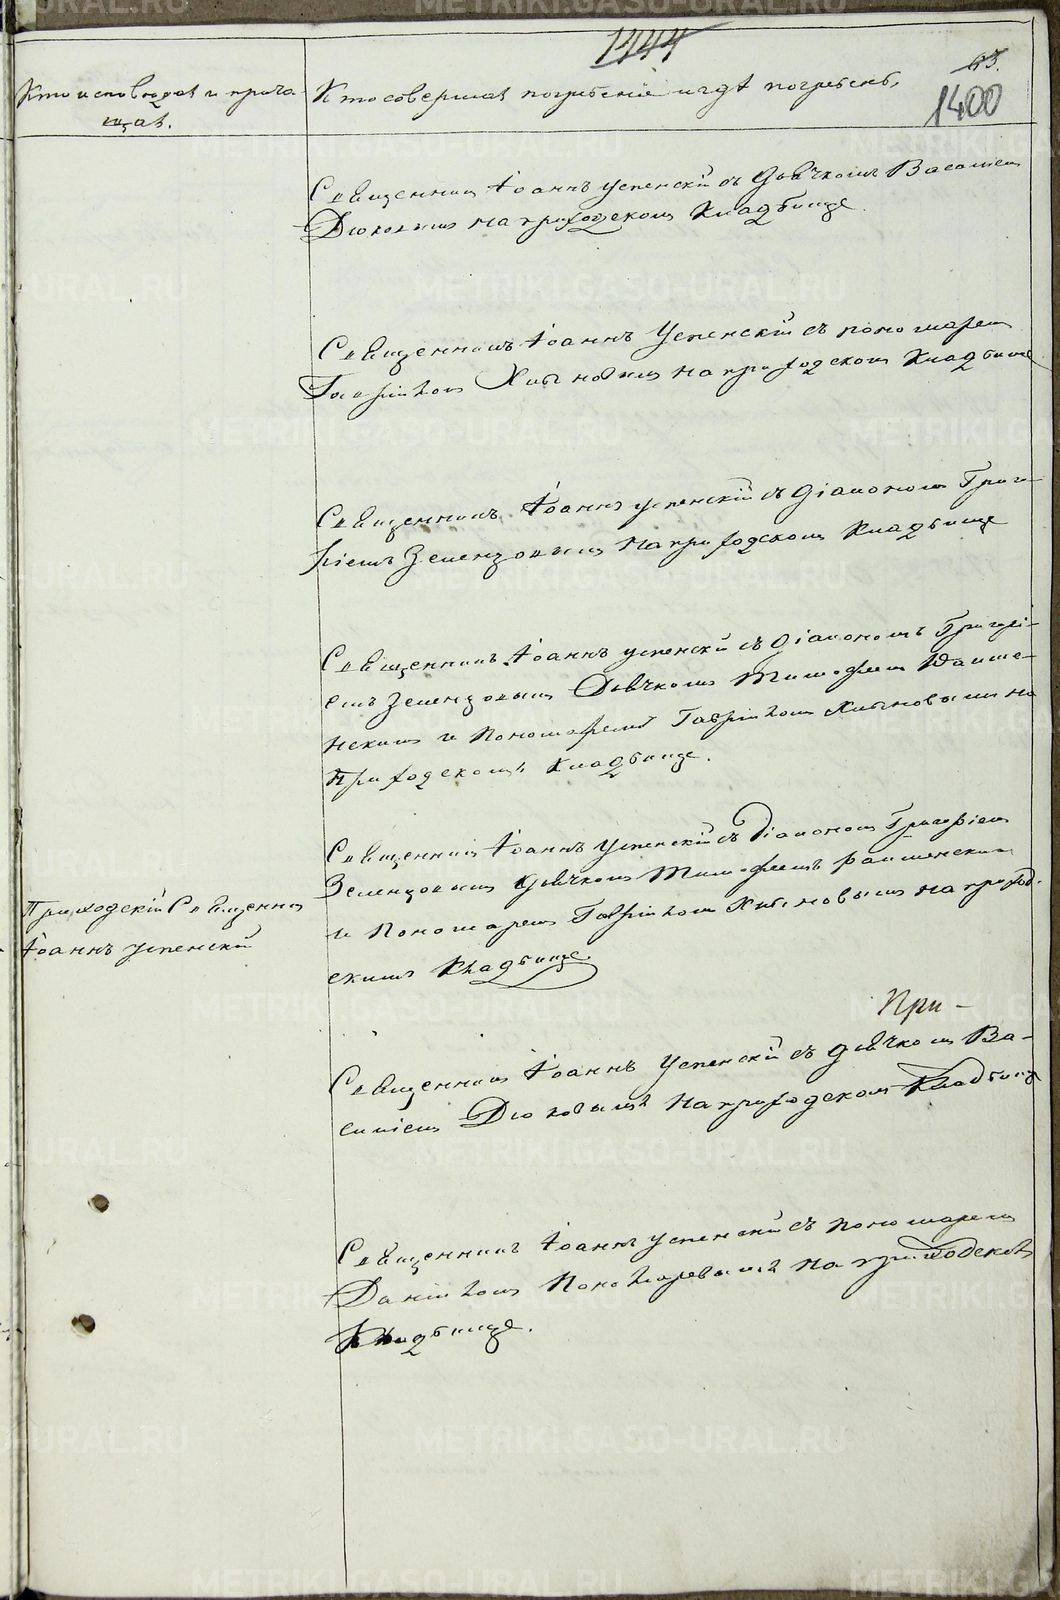 1444
63.
1400
Кто исповѣдал и прича
щал.
Кто совершал погребенiе и гдѣ погребенъ.
Священник Iоаннъ Успенскiй съ дьячкомъ Василiем
Дюковым на приходском кладбище.
Священникъ Iоаннъ Успенскiй съ пономарем
Гаврiилом Хлыновым на приходском кладбище
Священникъ Iоаннъ Успенскiй съ дiаконом Григо-
рiемъ Зеленцовым на приходском кладбище
Священникъ Iоаннъ Успенскiй съ дiакономъ Григорi-
емъ Зеленцовым Дьячком Тимофеем
нским и Пономаремъ Гаврiилом Хлыновым на
Приходскомъ кладбище.
Священник Iоаннъ Успенскiй съ Дiаконом Григорiем
Зеленцовым дьячком Тимофеемъ
и Пономарем Гаврiилом Хлыновым на приход-
скимъ кладбище.
Приходскiй Священник
Iоаннъ Успенскiй
При-
Священник Iоаннъ Успенскiй съ дьячком Ва-
силiем Дюковымъ на приходском кладбище
Священникъ Iоаннъ Успенскiй съ пономарем
Данiилом Пономаревымъ на приходском
кладбище.
METRIKI.GASO-URAL.RU